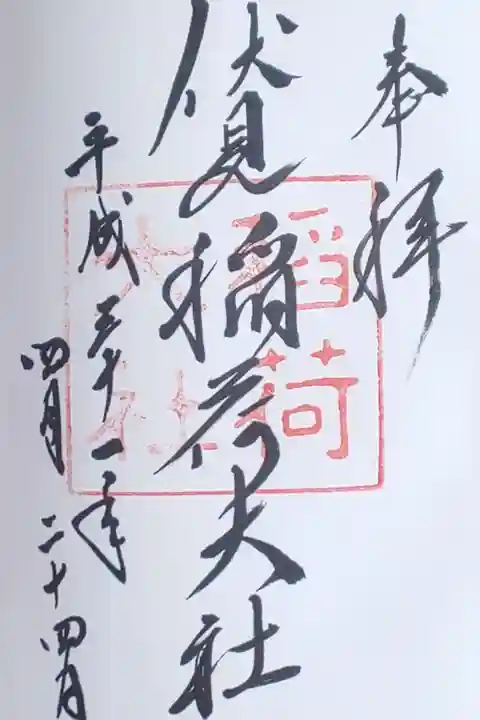 奉拝
伏見稲荷大社
平成三十一年
四月二十四日
稲荷
大社